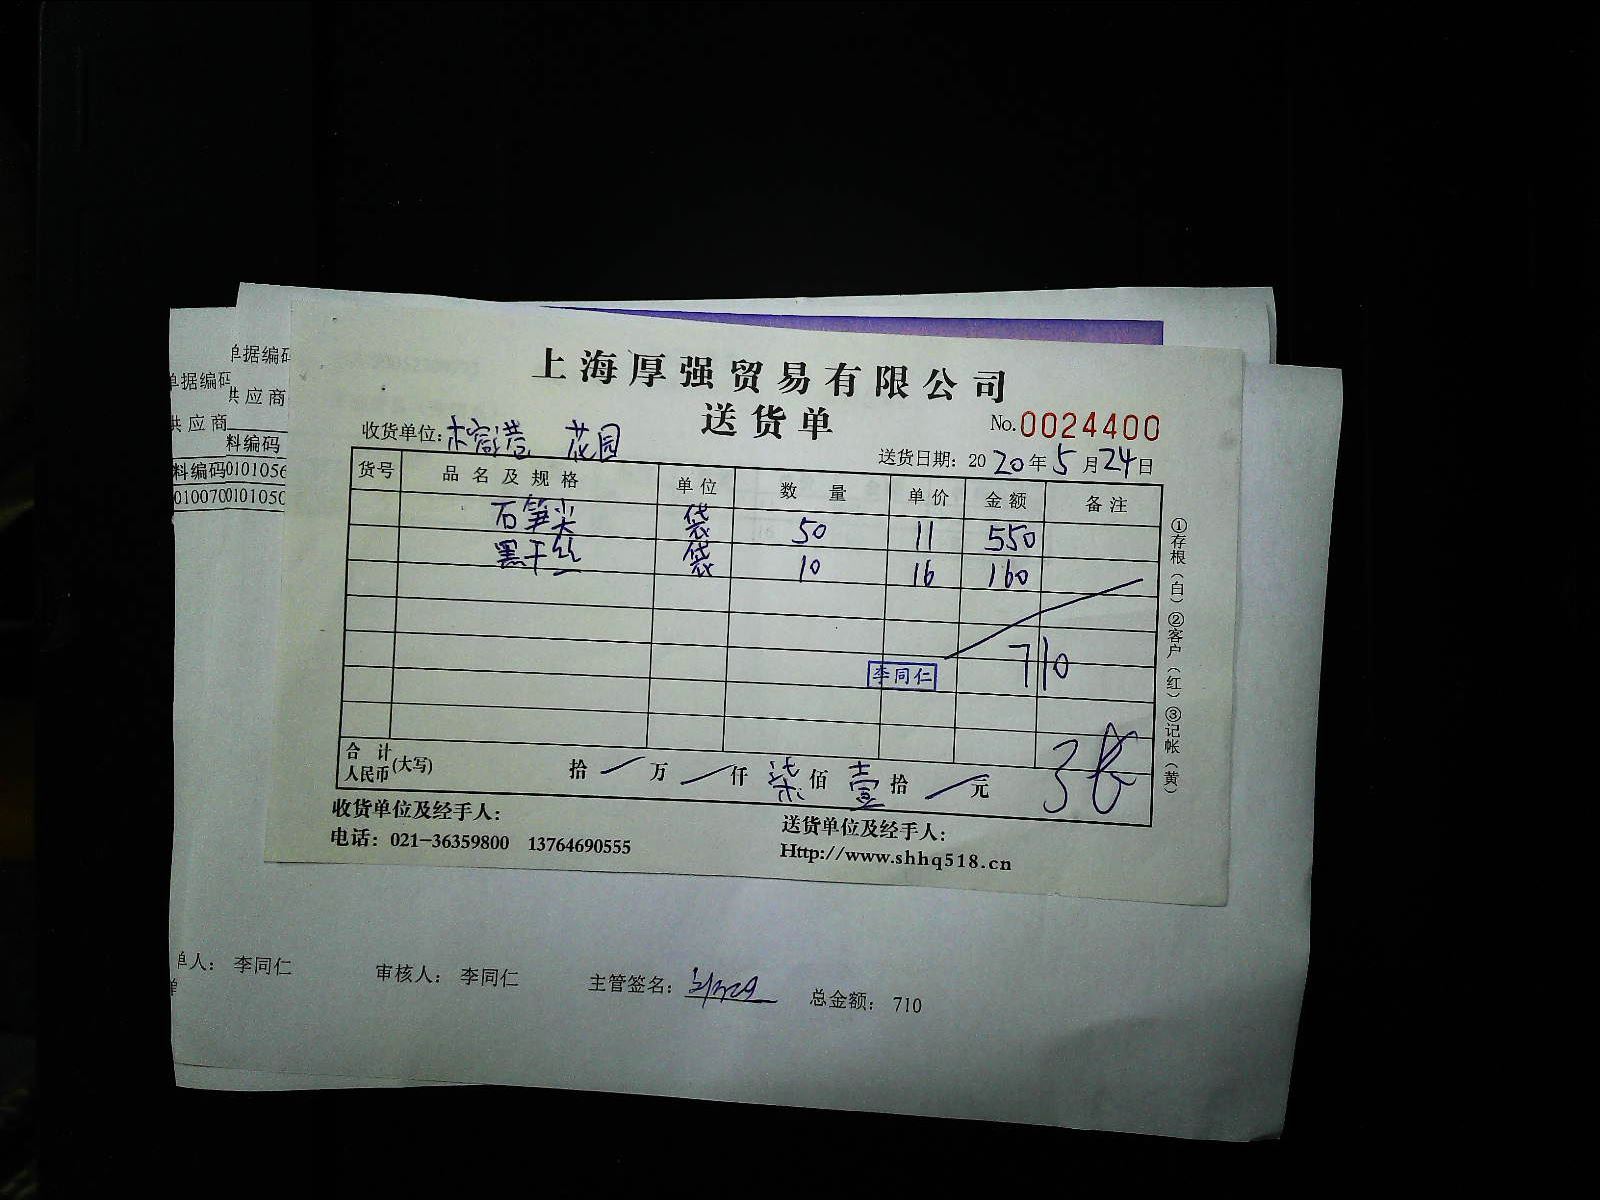 上海厚强贸易有限公司
送货单
No.0024400
收货单位: 花园
送货日期: 2020年5月24日
货号 品名及规格 单位 数量 单价 金额 备注
石笋尖 袋 50 11 550
黑干丝 袋 10 16 160
710
李同仁
合计人民币(大写) 拾 万 仟 柒佰 壹拾 元
收货单位及经手人:
送货单位及经手人:
电话: 021-36359800 13764690555
Http://www.shhq518.cn
①存根(白)②客户(红)③记帐(黄)
单据编码
单据编码
供应商
供应商
料编码
料编码 0101056
010070 0101050
单人: 李同仁 审核人: 李同仁 主管签名: 总金额: 710
单